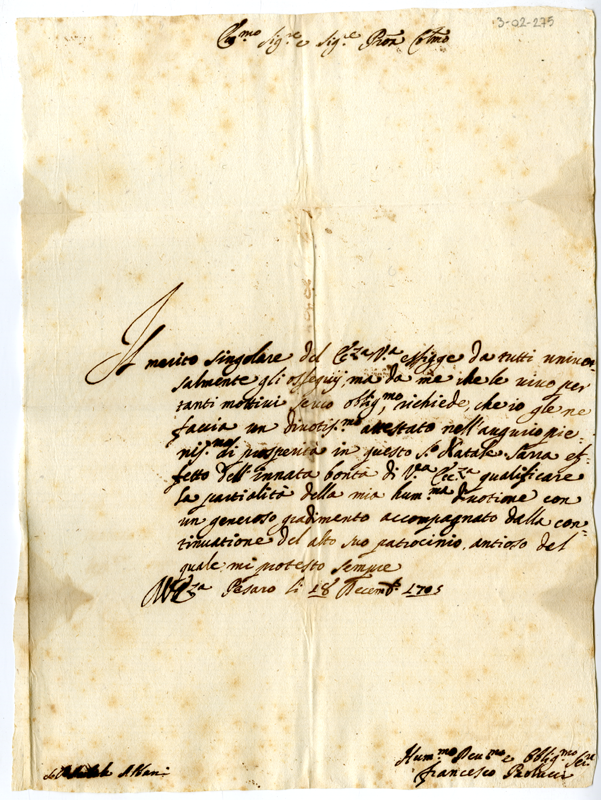 3-02-275
Ecc.mo Sig.re e Sig.re Pron Col.mo
Il merito singolare del Ecc.za V.a esigge da tutti univer=
salmente gli ossequij, ma da me che le vivo per
tanti mottivi servo oblig.mo, richiede, che io gle ne
faccia un divotis.mo attestato nell'augurio pie=
nis.mo di prosperità in questo S.o Natale. Sarra ef=
fetto dell'innata bontà di V.ra Ecc.za qualificare
la partialità della mia hum.ma divotione con
un generoso gradimento accompagnato dalla con=
tinuatione del alto suo patrocinio, antioso del
quale mi protesto sempre
Pesaro li 18 Decemb. 1705
Hum.mo Deut.mo e Oblig.mo Ser.re
Albani
Francesco Paolucci